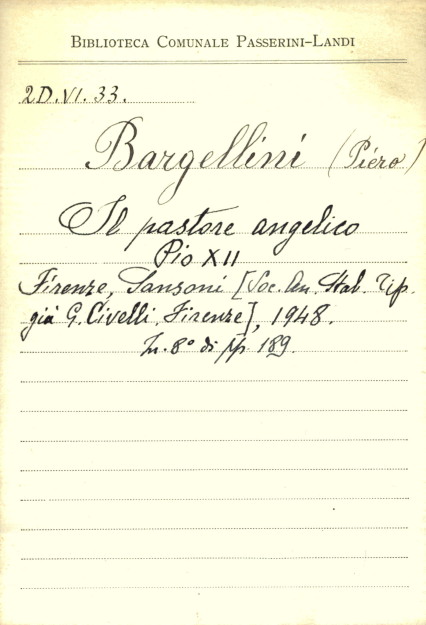 BIBLIOTECA COMUNALE PASSERINI-LANDI
2D.VI.33.
Bargellini (Piero)
Il pastore angelico
Pio XII
Firenze, Sansoni [Soc. An. Stab. Tip.
già G. Civelli. Firenze], 1948.
In. 8° di pp. 189.